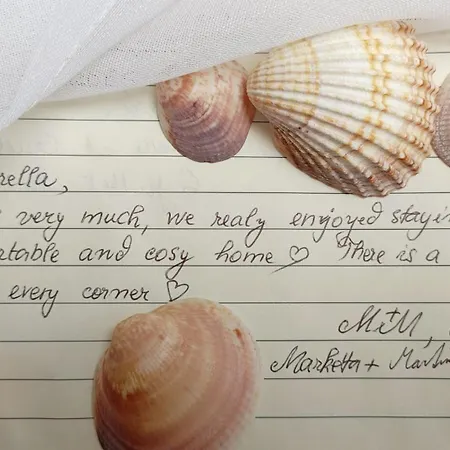 rella,
very much, we realy enjoyed stayin
rtable and cosy home ♡ There is a
every corner ♡
M+M,
Marketta + Martin